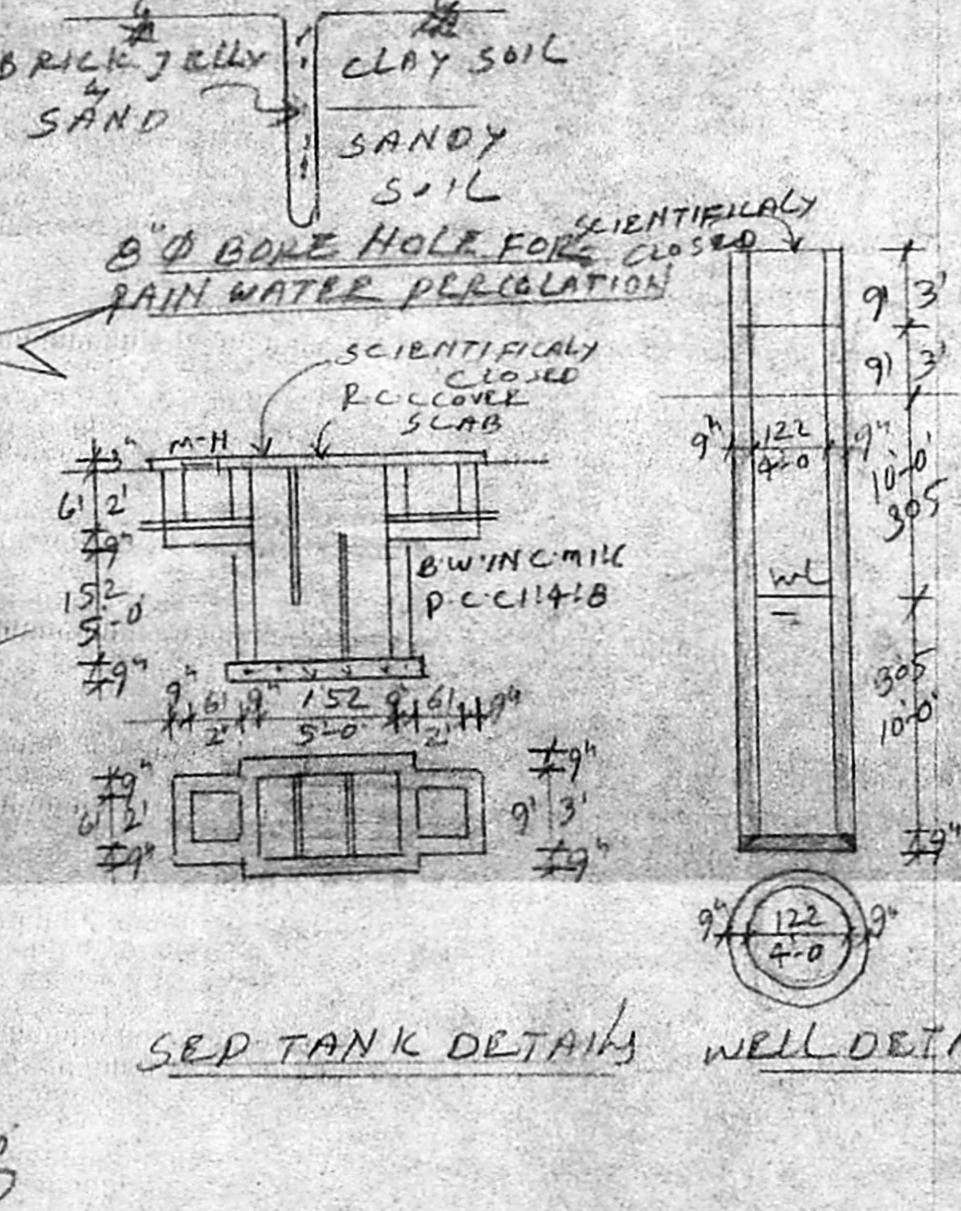 BRICK JELLY
&
SAND
CLAY SOIL
SANDY
SOIL
8"Φ BORE HOLE FOR
RAIN WATER PERCOLATION
SCIENTIFICALY
CLOSED
SCIENTIFICALY
CLOSED
R.C.C COVER
SLAB
M-H
3"
61 2'
9"
152
5'-0
9"
B.W IN C.M 1:6
P.C.C 1:4:8
9" 61 9" 152 9" 61 9"
2' 5'-0 2'
9"
61 2'
9"
9"
91 3'
9"
91 3'
91 3'
9" 122 9"
4'-0
10'-0'
305
WL
305
10'-0'
9"
9" 122 9"
4'-0
SEP TANK DETAILS
WELL DETA